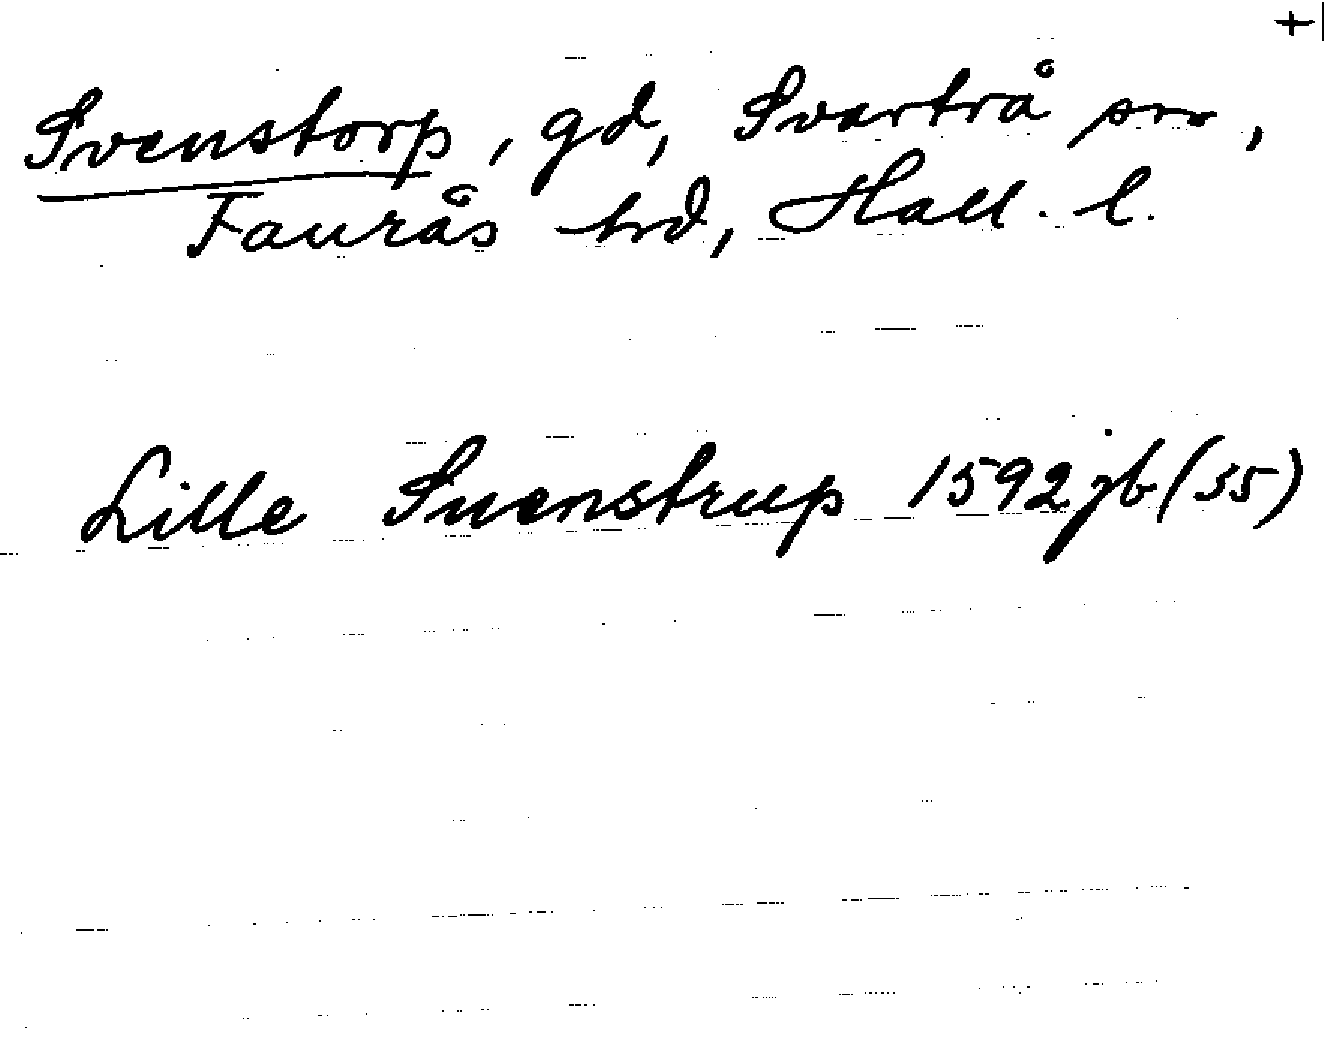 +
Svenstorp, gd, Svartrå sn,
Faurås hd, Hall. l.
Lille Suenstrup 1592 jb (55)